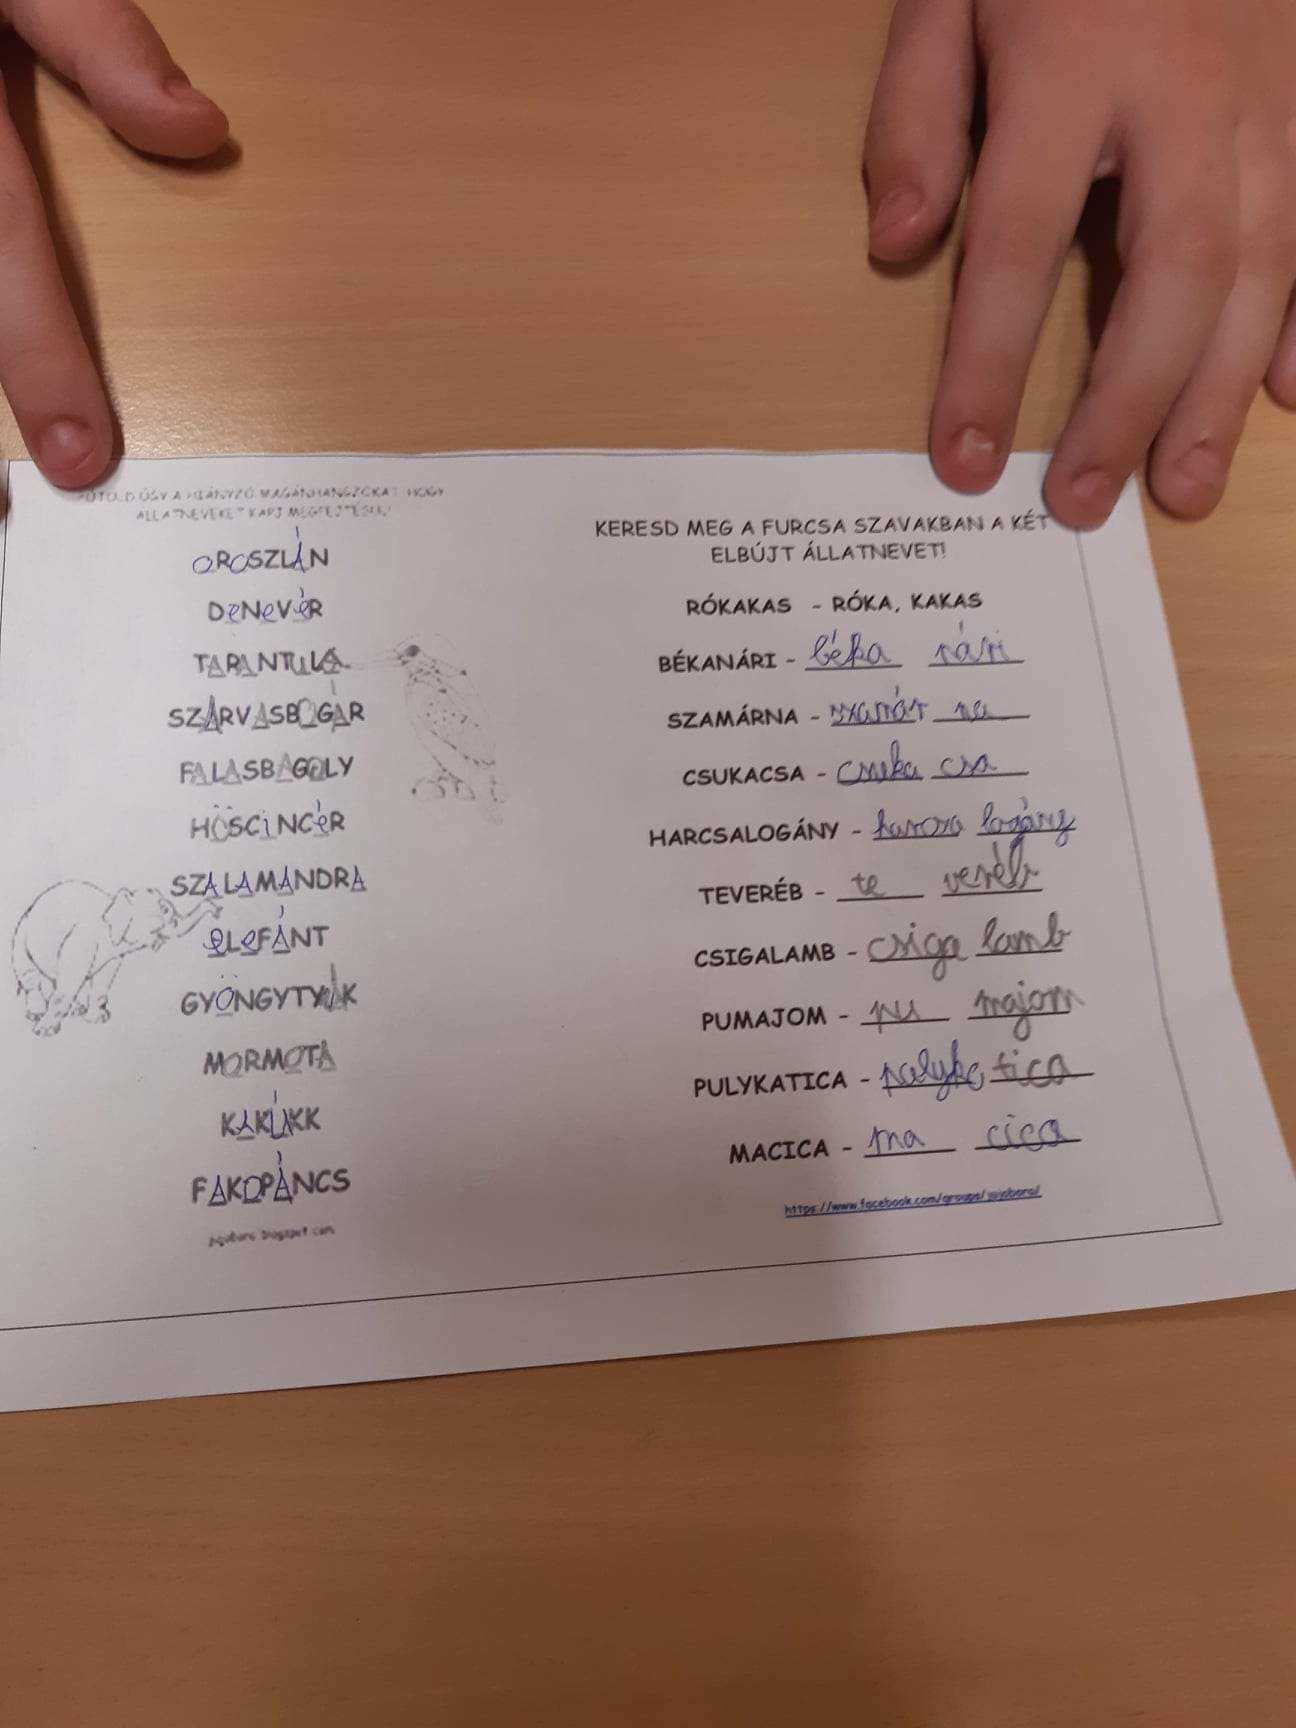 PÓTOLD ÚGY A HIÁNYZÓ MAGÁNHANGZÓKAT, HOGY
ÁLLATNEVEKET KAPJ MEGFEJTÉSÜL!
OROSZLÁN
DeNeVéR
TARANTULA
SZARVASBOGÁR
FALASBAGOLY
HÖSCiNCéR
SZALAMANDRA
eLeFÁNT
GYÖNGYTYÚK
MORMOTA
KAKUKK
FAKOPÁNCS
KERESD MEG A FURCSA SZAVAKBAN A KÉT
ELBÚJT ÁLLATNEVET!
RÓKAKAS - RÓKA, KAKAS
BÉKANÁRI - béka nári
SZAMÁRNA - szamár na
CSUKACSA - csuka csa
HARCSALOGÁNY - harcsa logány
TEVERÉB - te veréb
CSIGALAMB - csiga lamb
PUMAJOM - pu majom
PULYKATICA - pulyka tica
MACICA - ma cica
https://www.facebook.com/groups/